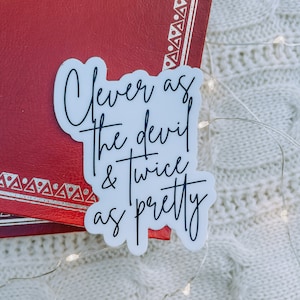 Clever as
the devil
& twice
as pretty